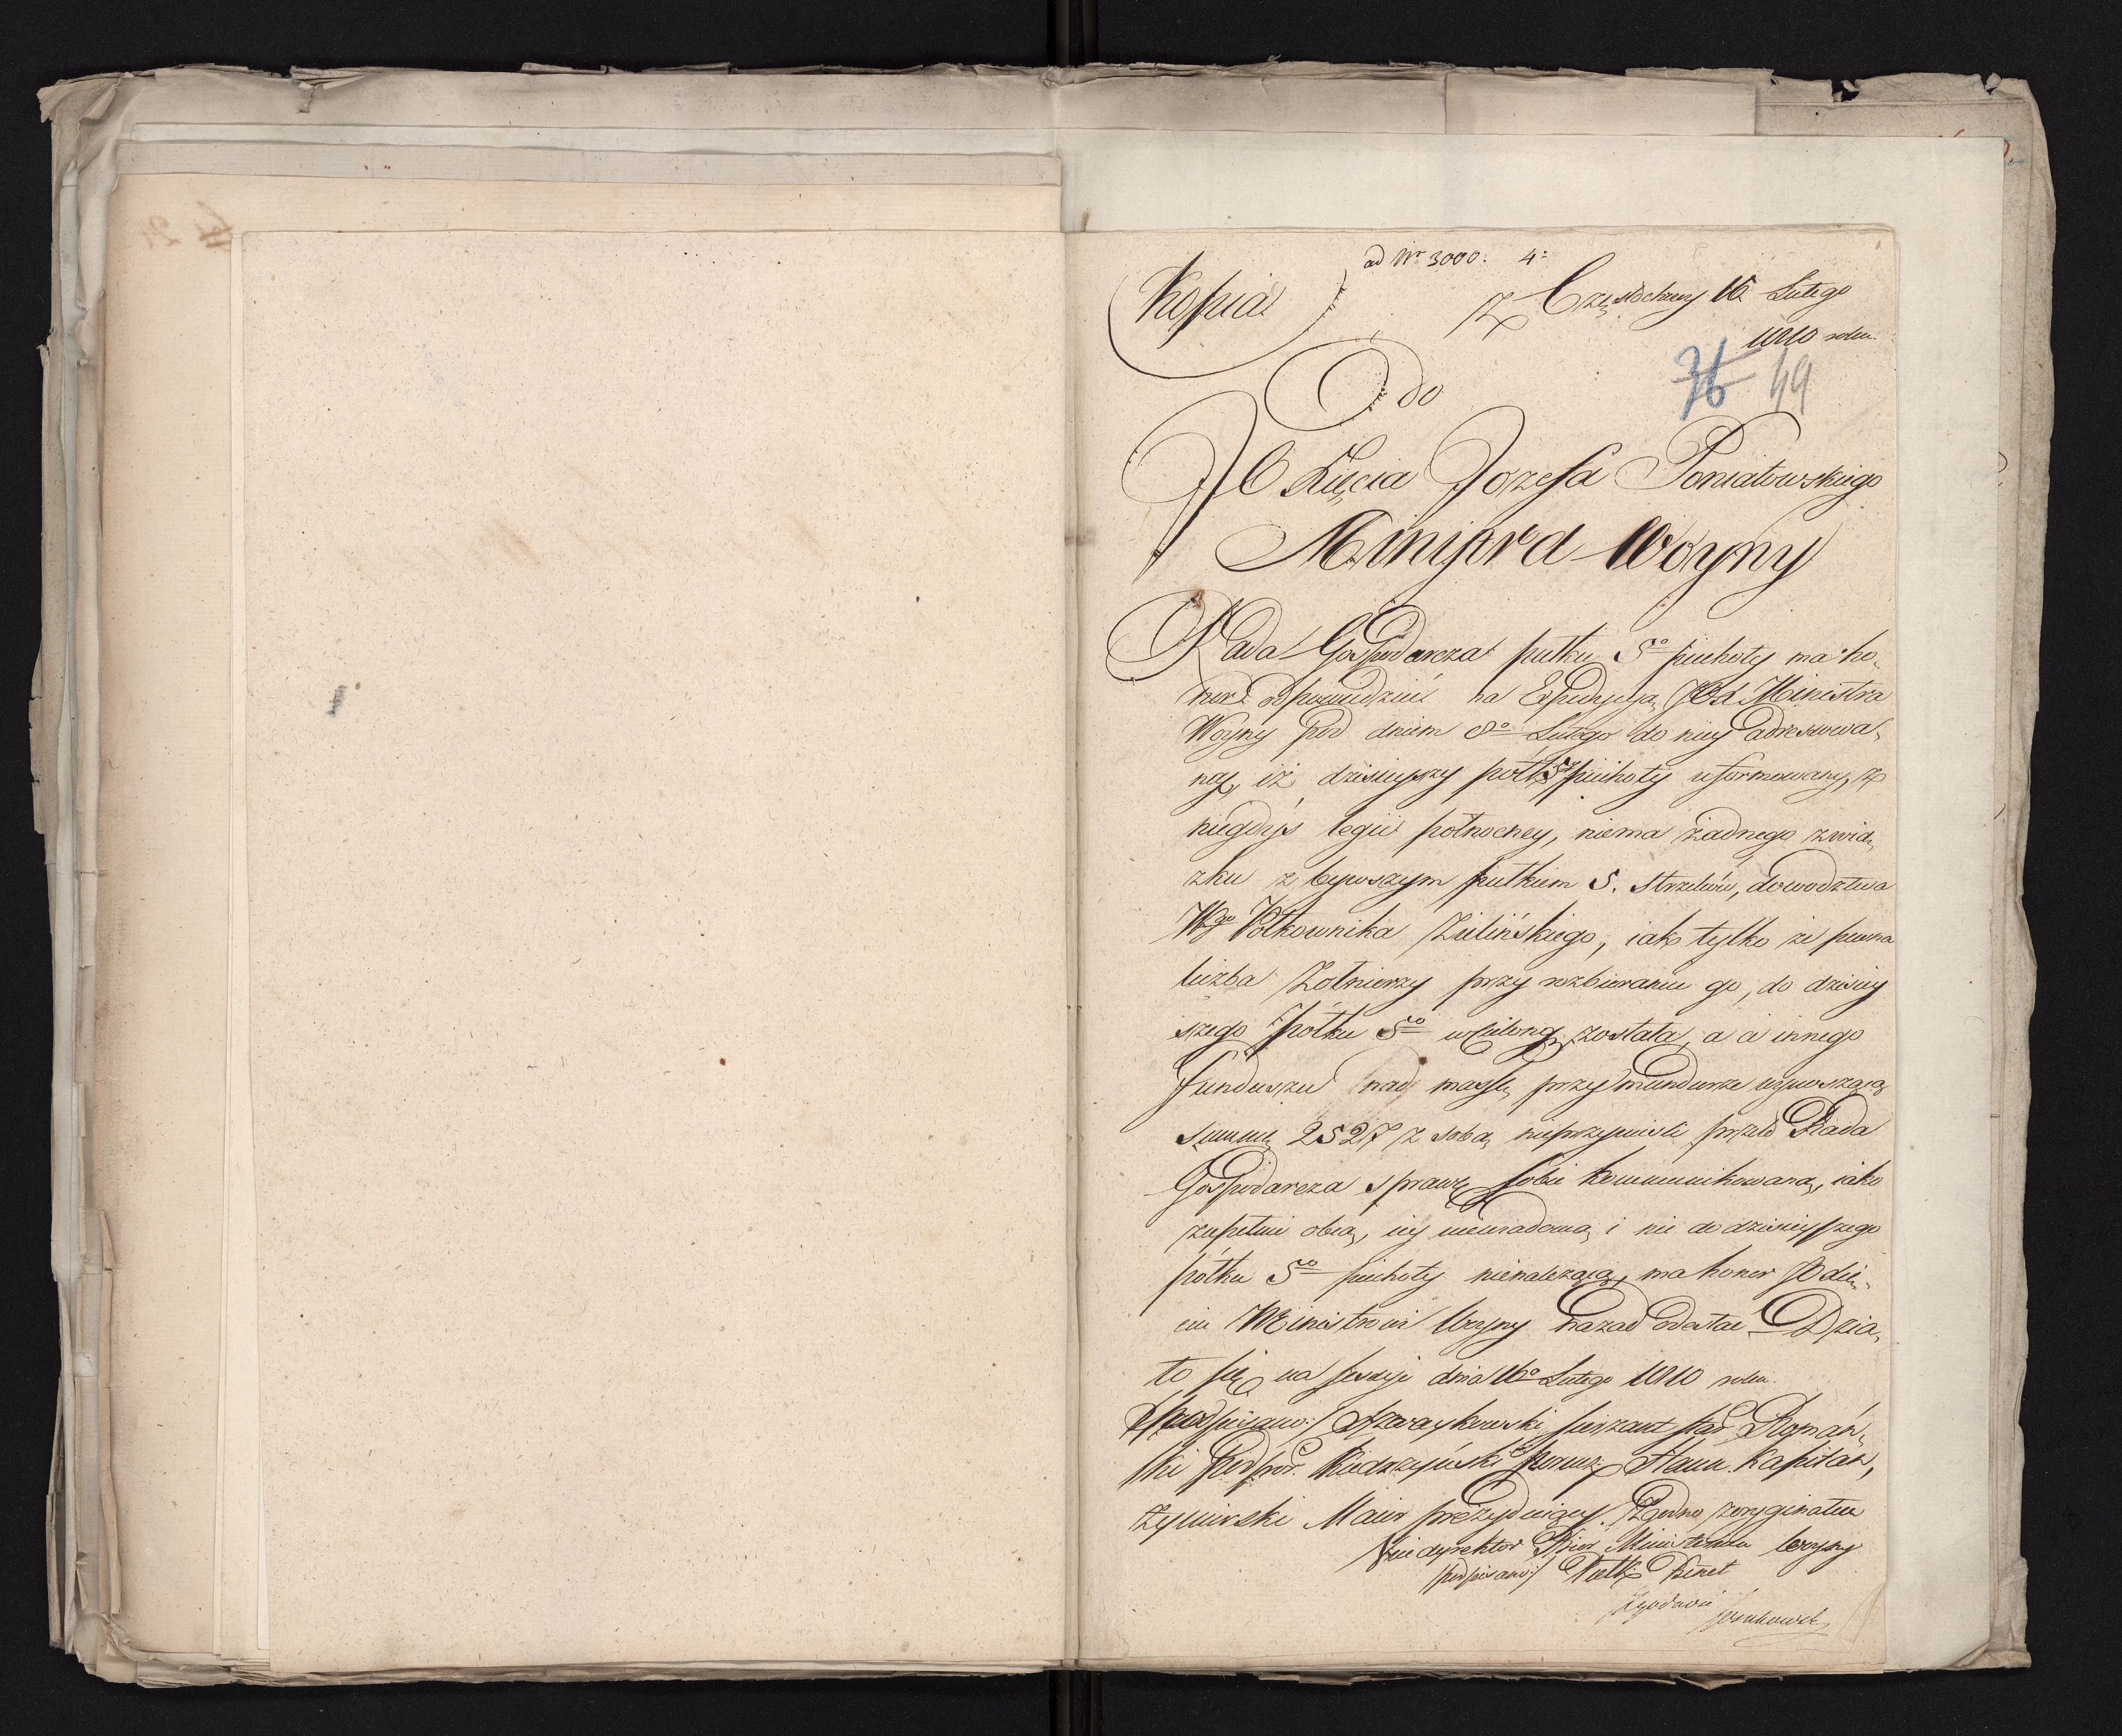 ad Nr 3000. 4:
Kopia
Z Częstochowy 16 Lutego
1810 roku.
36 49
Do
JO Xięcia Jozefa Poniatowskiego
Ministra Woyny
Rada Gospodarcza pułku 5go piechoty ma ho„
nor odpowiedzieć na Expedycyą JO Xa Ministra
Woyny pod dniem 8o Lutego do niey adressowa„
ną, iż dzisieyszy połk 5 piechoty uformowany z
niegdyś legii północney, niema żadnego związ„
zku z bywszym pułkiem 5. strzelców, dowodztwa
Wgo Połkownika Zielińskiego, iak tylko że pewna
liczba Zołnierzy przy rozbieraniu go, do dzisiey
szego połku 5go wcieloną została, a ci innego
funduszu nad massę przy mundurze wynoszącą
summę 2527 z sobą nieprzynieśli przeto Rada
Gospodarcza sprawę sobie kommunikowaną, iako
zupełnie obcą, iey niewiadomą i nie do dzisieyszego
połku 5go piechoty nienależącą, ma honor JO Xię„
ciu Ministrowi Woyny nazad odesłać. Dzia„
ło się na sessyi dnia 16o Lutego 1810 roku.
/podpisano:/ sierzant star. Romań„
ski Podpor. Kiedrzyński Porucz. Kapitan,
Zymirski Maior prezyduiący. Zgodno z oryginałem
Vice dyrektor Biór Ministerium Woyny
/podpisano:/ Pułk Kinet
Zgodność